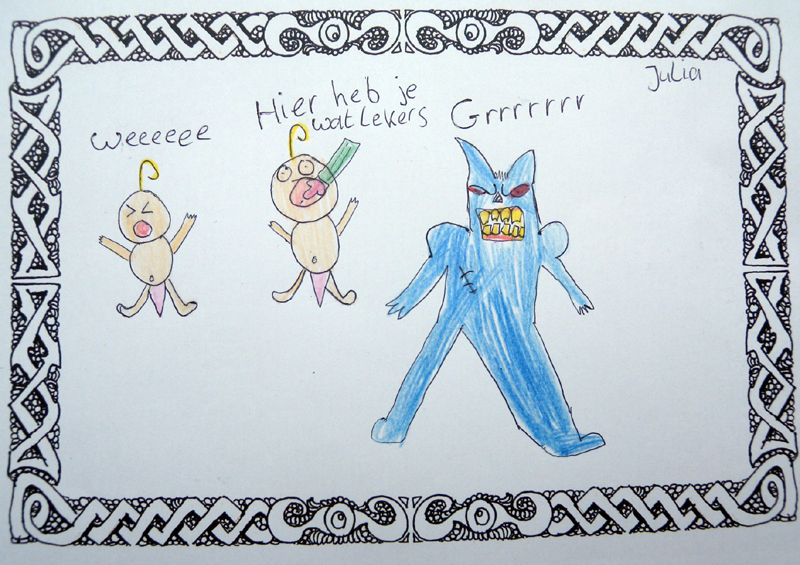 Julia
weeeeee
Hier heb je
wat lekers
Grrrrrrr